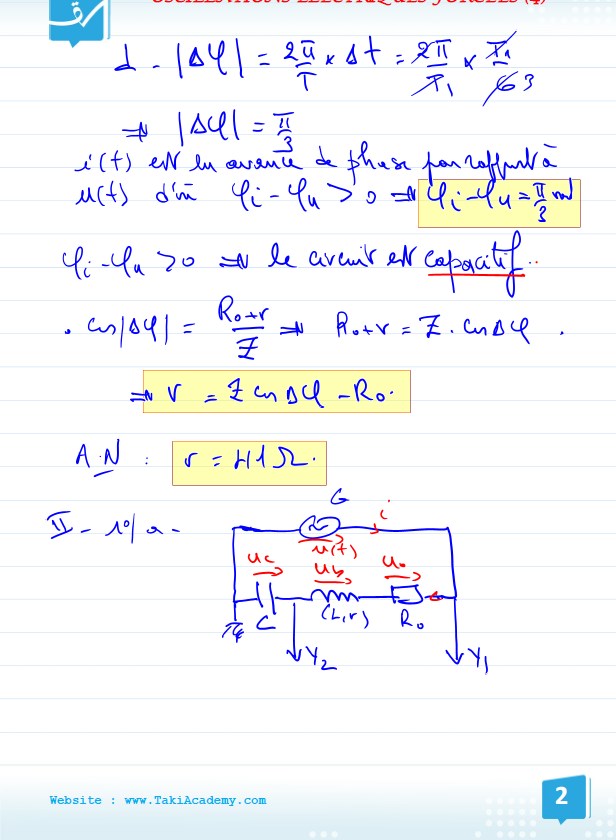 OSCILLATIONS ELECTRIQUES FORCEES (4)
d - |Δφ| = 2π/T × Δt = 2π/T₁ × T₁/6 3
⇒ |Δφ| = π/3
i(t) est en avance de phase par rapport à
u(t) d'où φi - φu > 0 ⇒ φi - φu = π/3 rad
φi - φu > 0 ⇒ le circuit est capacitif..
. cos|Δφ| = R₀+r/Z ⇒ R₀+r = Z . cosΔφ .
⇒ r = Z cosΔφ - R₀.
A.N : r = 41Ω.
II - 1°/ a -
G
i
u(t)
uc
ub
u₀
C
(L,r)
R₀
Y₂
Y₁
Website : www.TakiAcademy.com
2